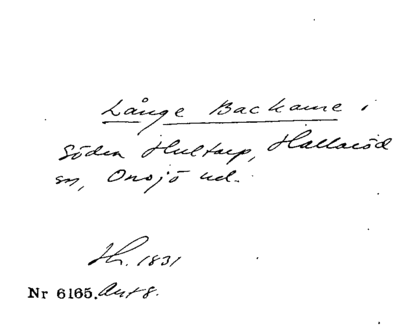 Långe Backarne i
Söder Hultarp, Hallaröd
sn, Onsjö hd.
Hs. 1831
Nr 6165. Ant 8.